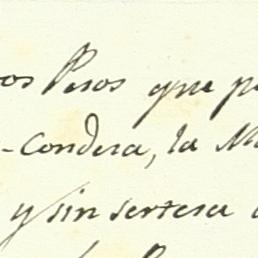 os Pesos que p
-Condesa, la M
y sin sertesa